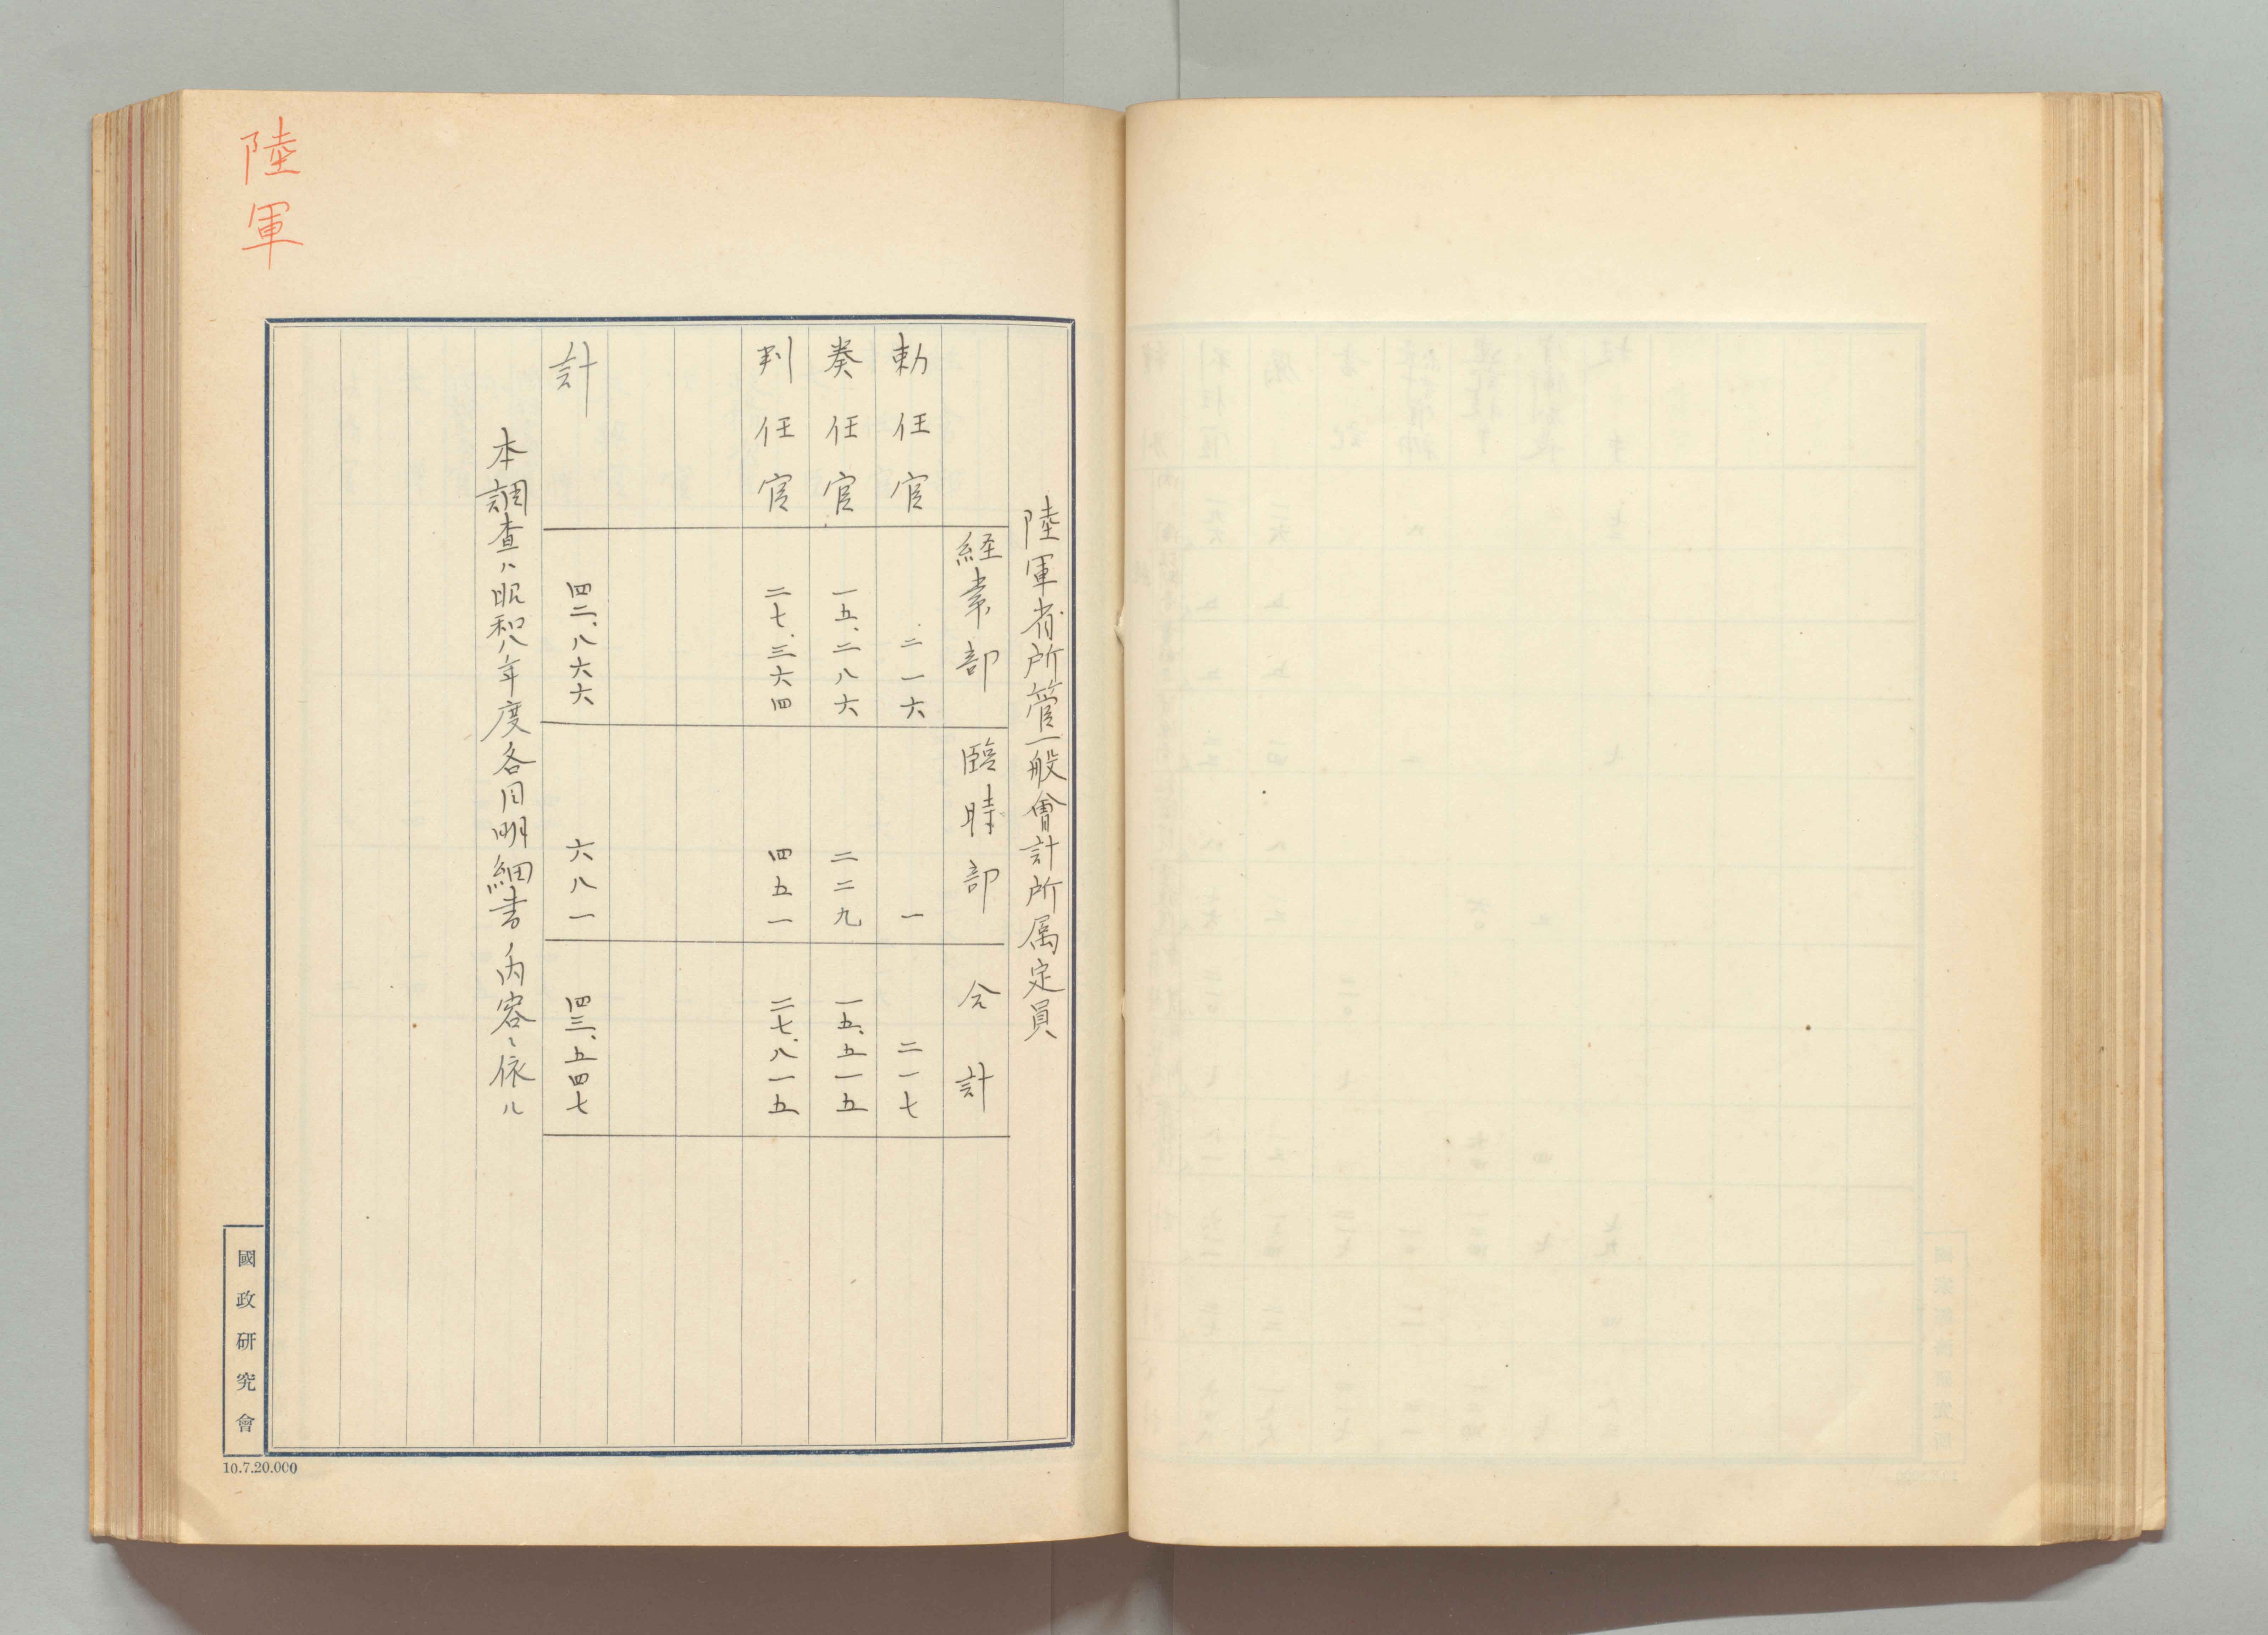 陸軍
陸軍省所管一般會計所属定員
経常部 臨時部 合計
勅任官 二一六 一 二一七
奏任官 一五、二八六 二二九 一五、五一五
判任官 二七、三六四 四五一 二七、八一五
計 四二、八六六 六八一 四三、五四七
本調査ハ昭和八年度各目明細書内容ニ依ル
國政研究會
10.7.20.000